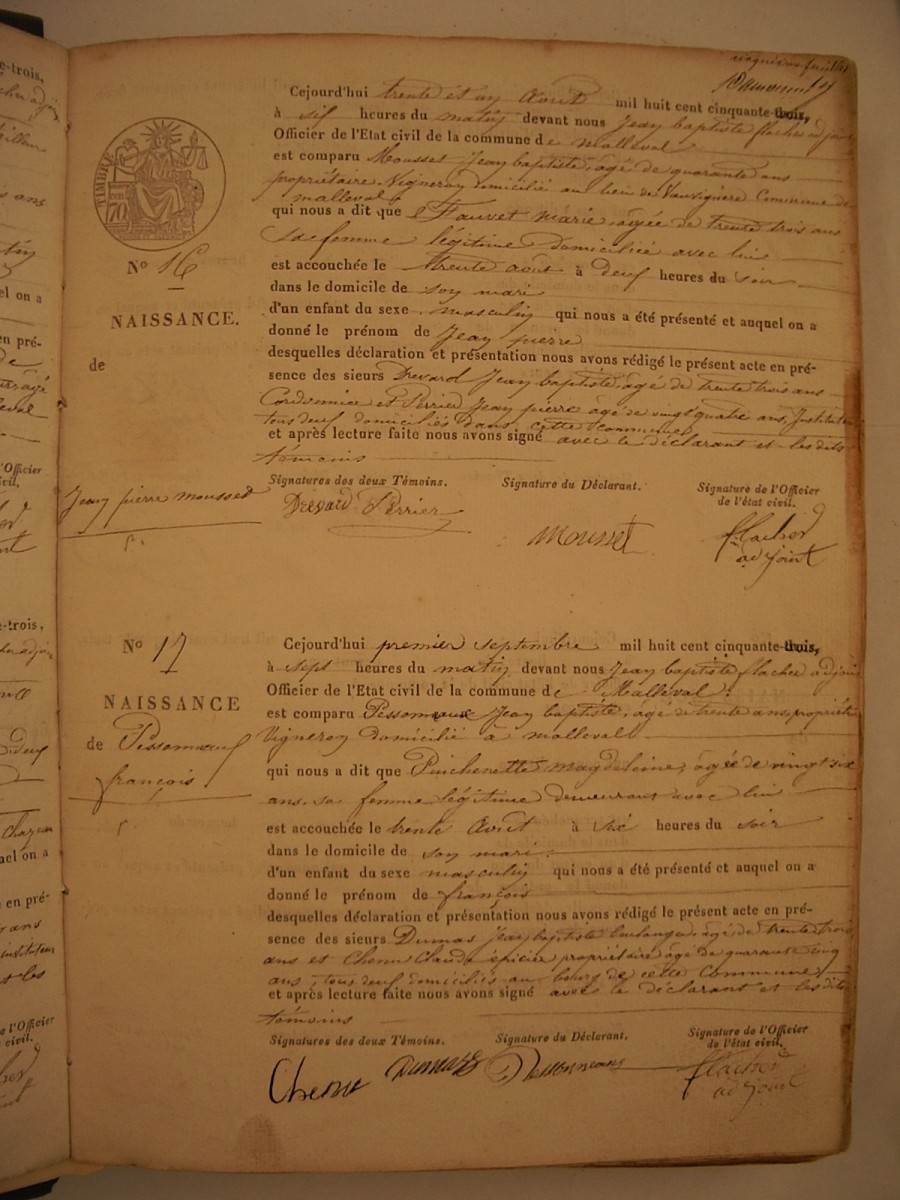 cinquième feuillet
TIMBRE
70
Cejourd'hui trente et un Aout mil huit cent cinquante-trois,
à six heures du matin devant nous Jean baptiste flacher adjoint
Officier de l'Etat civil de la commune de malleval
est comparu Mousset Jean baptiste, agé de quarante ans
propriétaire Vigneron domicilié au lieu de Commune de
malleval
qui nous a dit que Fauvet marie, agée de trente trois ans
sa femme légitime domiciliée avec lui
est accouchée le trente aout à deux heures du soir
dans le domicile de son mari
d'un enfant du sexe masculin qui nous a été présenté et auquel on a
donné le prénom de Jean pierre
desquelles déclaration et présentation nous avons rédigé le présent acte en pré-
sence des sieurs Drevard Jean baptiste, agé de trente trois ans
Cordonnier et Perrier Jean pierre agé de vingt quatre ans, Instituteur
tous deux domiciliés dans cette commune
et après lecture faite nous avons signé avec le déclarant et les dits
témoins
Signatures des deux Témoins. Signature du Déclarant. Signature de l'Officier
de l'état civil.
Drevard Perrier Mousset flacher
adjoint
No 16
NAISSANCE.
de
Jean pierre mousset
No 17
NAISSANCE
de Pessonneaux
françois
Cejourd'hui premier septembre mil huit cent cinquante-trois,
à sept heures du matin devant nous Jean baptiste flacher adjoint
Officier de l'Etat civil de la commune de Malleval
est comparu Pessonneaux Jean baptiste, agé de trente ans, propriétaire
Vigneron domicilié à malleval
qui nous a dit que Puichenette magdeleine, agée de vingt six
ans, sa femme légitime demeurant avec lui
est accouchée le trente Aout à six heures du soir
dans le domicile de son mari
d'un enfant du sexe masculin qui nous a été présenté et auquel on a
donné le prénom de françois
desquelles déclaration et présentation nous avons rédigé le présent acte en pré-
sence des sieurs Dumas Jean baptiste boulanger, agé de trente trois
ans et Chenu Claude épicier propriétaire agé de quarante cinq
ans, tous deux domiciliés au bourg de cette Commune
et après lecture faite nous avons signé avec le déclarant et les dits
témoins
Signatures des deux Témoins. Signature du Déclarant. Signature de l'Officier
de l'état civil.
Chenu Dumas Pessonneaux flacher
adjoint